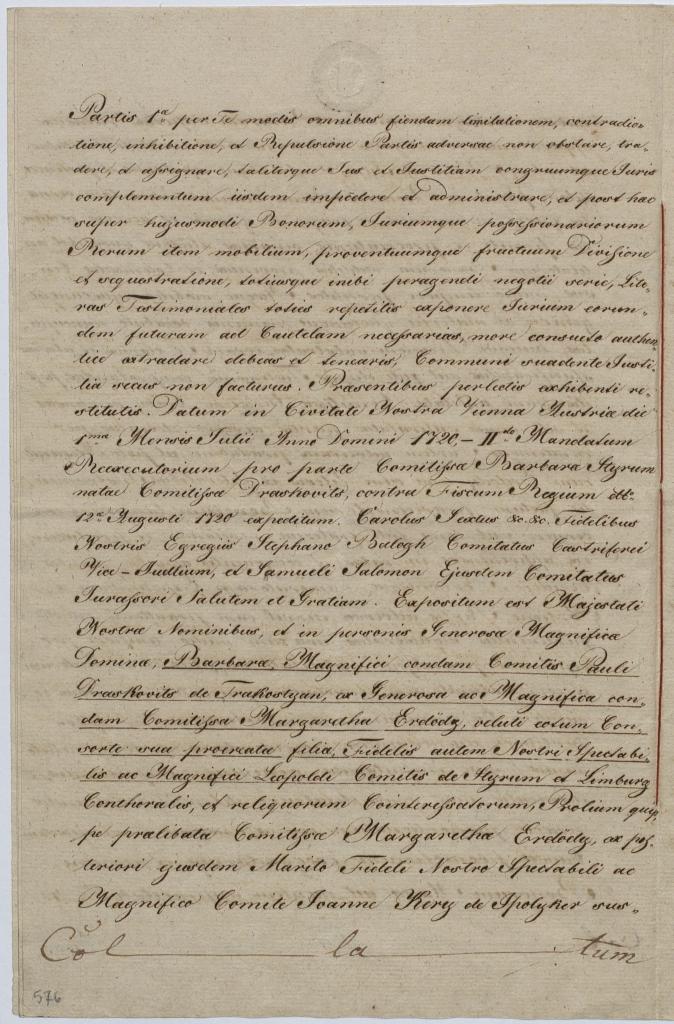 Partis 1ª per Te modis omnibus fiendam limitationem, contradic=
tione, inhibitione, et Repulsione Partis adversae non obstare, tra=
dere, et assignare, taliterque Jus et Justitiam congruumque Juris
complementum iisdem impedere et administrare, et post hac
super hujusmodi Bonorum, Juriumque possessionariorum
Rerum item mobilium, proventuumque fructuum Divisione
et sequestratione, totiusque inibi peragendi negotii serie, Lite=
ras Testimoniales toties repetitis exponere Jurium eorun=
dem futuram ad Cautelam necessarias, more consueto authen=
tice extradare debeas et tenearis, Communi suadente Justi=
tia secus non facturus. Praesentibus perlectis exhibenti re=
stitutis. Datum in Civitate Nostra Vienna Austria die
1ma Mensis Julii Anno Domini 1720.– II do Mandatum
Reexecutorium pro parte Comitissa Barbara Styrum
natae Comitissa Draskovits, contra Fiscum Regium dto
12ª Augusti 1720 expeditum. Carolus Sextus &c. &c. Fidelibus
Nostris Egregiis Stephano Balogh Comitatus Castriferei
Vice-Judlium, et Samueli Salomon Ejusdem Comitatus
Jurassori Salutem et Gratiam. Expositum est Majestati
Nostrae Nominibus, et in personis Generosa Magnifica
Domina, Barbara, Magnifici condam Comitis Pauli
Draskovits de Trakostyan, ex Generosa ac Magnifica con=
dam Comitissa Margaretha Erdödy, veluti Con=
sorte sua procreata filia, Fidelis autem Nostri Spectabi=
lis ac Magnifici Leopoldi Comitis de Styrum et Limburg
Conthoralis, et reliquorum Cointeressatorum, Prolium quip=
pe praelibata Comitissae Margaretha Erdödy, ex pos=
teriori ejusdem Marito Fideli Nostro Spectabili ac
Magnifico Comite Joanne Kery de Ipolyker sus=
Col la tum
576